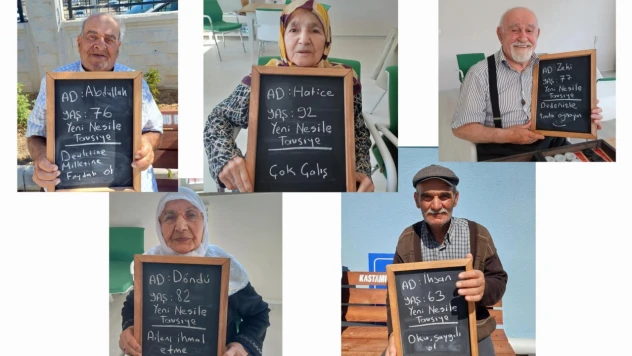 AD: Abdullah
YAŞ: 76
Yeni Nesile
Tavsiye
Devletine
Milletine
Faydalı ol
AD: Hatice
YAŞ: 92
Yeni Nesile
Tavsiye
Çok Çalış
AD: Zeki
YAŞ: 77
Yeni Nesile
Tavsiye
AD: Döndü
YAŞ: 82
Yeni Nesile
Tavsiye
Aileni ihmal
etme
KASTAM
AD: İhsan
YAŞ: 63
Yeni Nesile
Tavsiye
Oku, saygılı
ol